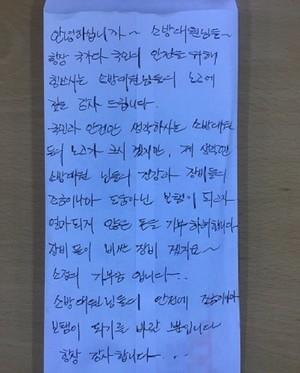 안녕하십니까~ 소방대원님들~
항상 국가와 국민의 안전을 위해
힘쓰시는 소방대원님들의 노고에
깊은 감사 드립니다.
국민의 안전만 생각하시는 소방대원
들의 노고가 크시겠지만, 제 생각은
소방대원 님들의 건강과 장비들의
조금이나마 도움아닌 보탬이 되고자
얼마되지 않은 돈을 기부 하려합니다
장비 들이 비싼 장비 겠지요~
소정의 기부금 입니다..
소방대원님들의 안전에 조금이나마
보탬이 되기를 바랄 뿐입니다
항상 감사합니다...